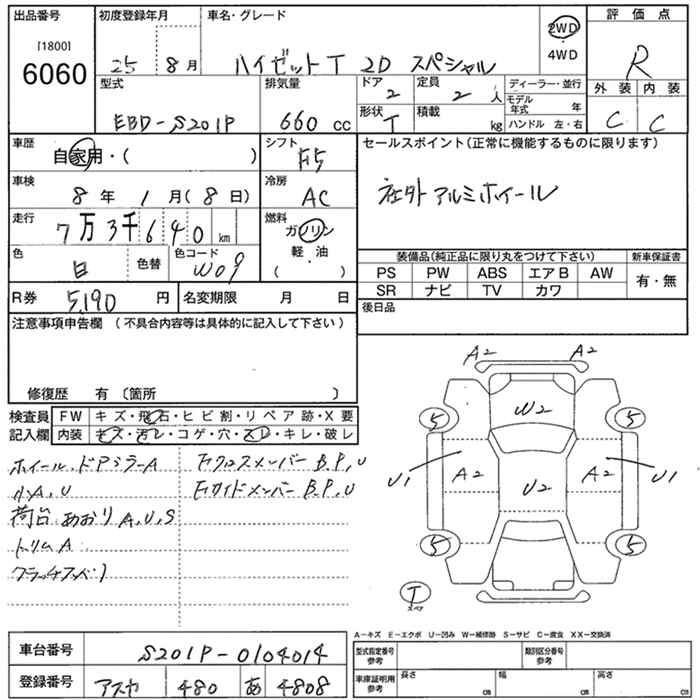 出品番号 初度登録年月 車名・グレード 評価点
[1800] 6060
25 8月 ハイゼットT 2D スペシャル
2WD・4WD
R
型式 EBD-S201P 排気量 660 cc ドア 2 定員 2 人 ディーラー・並行 外装 内装
形状 T 積載 kg モデル年式 年 ハンドル 左・右 C C
車歴 自家用・( ) シフト F5 セールスポイント(正常に機能するものに限ります)
車検 8年 1月(8日) 冷房 AC 社外アルミホイール
走行 7万3千640 km 燃料 ガソリン・軽油・( )
色 白 色替 色コード W09
装備品(純正品に限り丸をつけて下さい) 新車保証書
PS PW ABS エアB AW 有・無
SR ナビ TV カワ
R券 5,190円 名変期限 月 日 後日品
注意事項申告欄 (不具合内容等は具体的に記入して下さい)
修復歴 有 〔箇所 〕
検査員 FW キズ・飛石・ヒビ割・リペア跡・X要
記入欄 内装 キズ・汚レ・コゲ・穴・スレ・キレ・破レ
ホイール、ドアミラーA
小A,U
荷台あおりA,U,S
トリムA
Fクロスメンバー B,P,U
Fサイドメンバー B,P,U
A2 A2
W2
5 5
U1 A2 U2 A2 U1
5 5
T
スペア
A-キズ E-エクボ U-凹み W-補修跡 S-サビ C-腐食 XX-交換済
車台番号 S201P-0104014 型式指定番号 参考 類別区分番号 参考
登録番号 アスカ 480 あ 4808 車庫証明用 参考 長さ cm 幅 cm 高さ cm